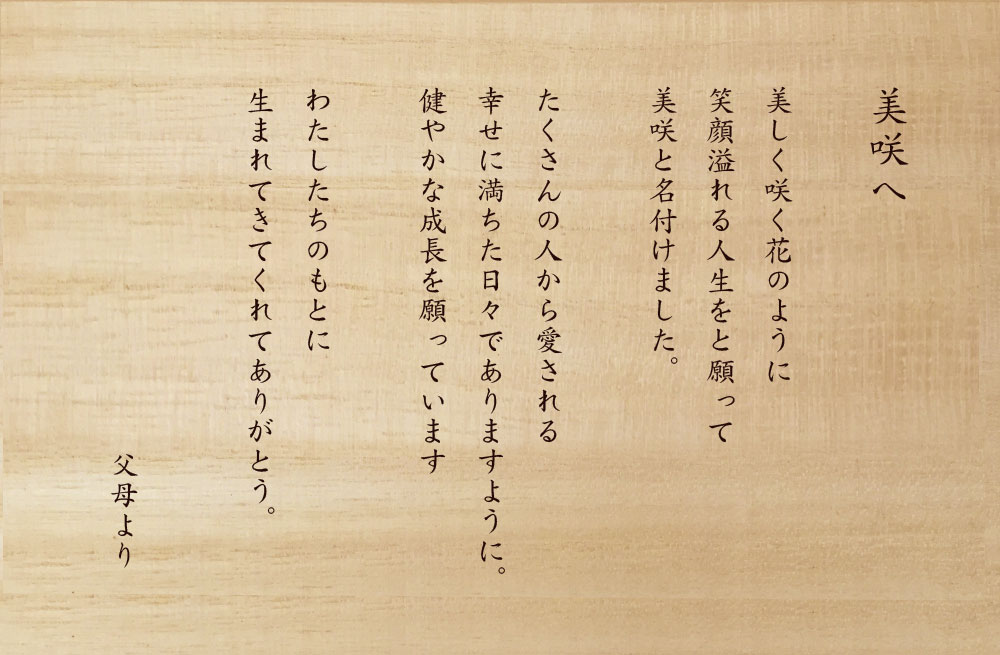 美咲へ
美しく咲く花のように
笑顔溢れる人生をと願って
美咲と名付けました。
たくさんの人から愛される
幸せに満ちた日々でありますように。
健やかな成長を願っています
わたしたちのもとに
生まれてきてくれてありがとう。
父母より